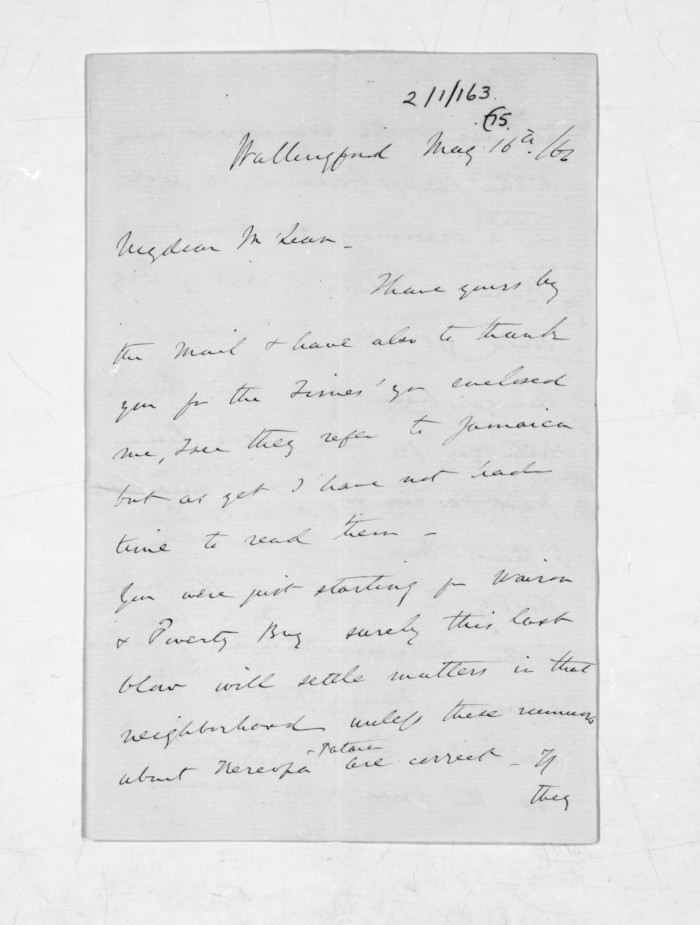 2/1/163.
Wallingford May 16th /66
My dear McLean -
I have yours by
the Mail & have also to thank
you for the 'Times' you enclosed
me, I see they refer to Jamaica
but as yet I have not had
time to read them -
You were just starting for Wairoa
& Poverty Bay surely this last
blow will settle matters in that
neighborhood unless these rumours
& Patara
about Kereopa are correct - If
they